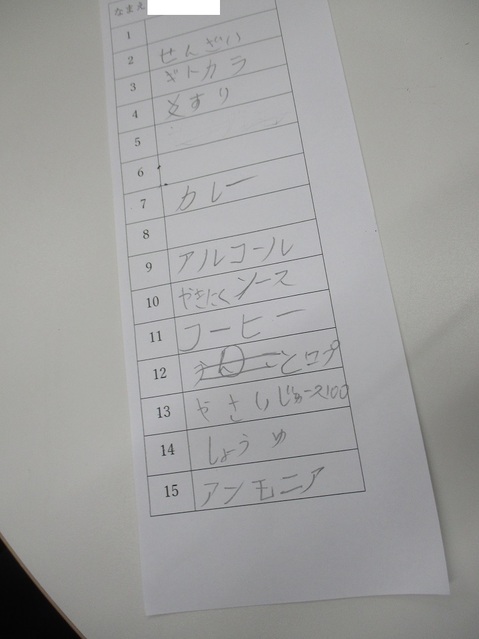 なまえ
1
2 せんざい
3
4 くすり
5
6
7 カレー
8
9 アルコール
10 やきにくソース
11 コーヒー
12
13 やさいじゅース100
14 しょうゆ
15 アンモニア